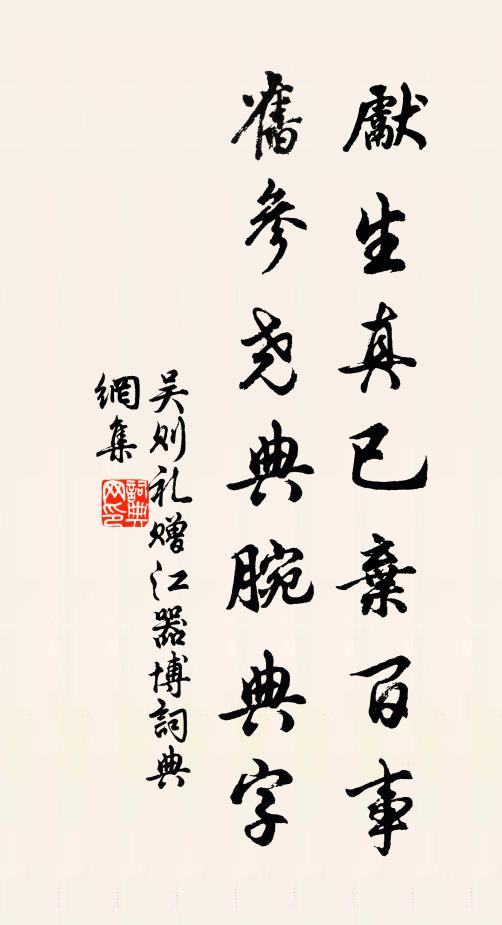 獻生真已棄百事
舊參尧典腕典字
吴则礼赠江器博詞典
網集
詞典网印